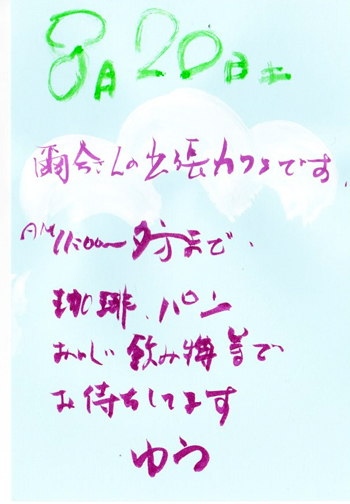 8月20日土
爾今さんの出張カフェです。
AM11:00〜夕方まで、
珈琲、パン
おいしい飲み物等で
お待ちしてます
ゆう